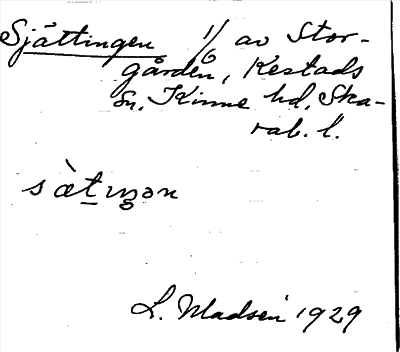 Sjättingen 1/6 av Stor-
gården, Kestads
Sn. Kinne hd, Ska-
rab. l.
sætiŋən
L. Madsen 1929